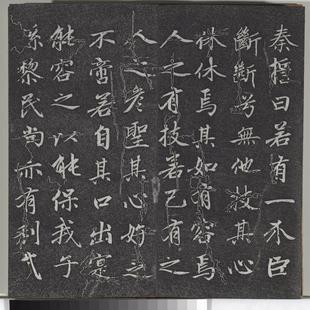 秦誓曰若有一个臣
斷斷兮無他技其心
休休焉其如有容焉
人之有技若己有之
人之彥聖其心好之
不啻若自其口出寔
能容之以能保我子
孫黎民尚亦有利哉